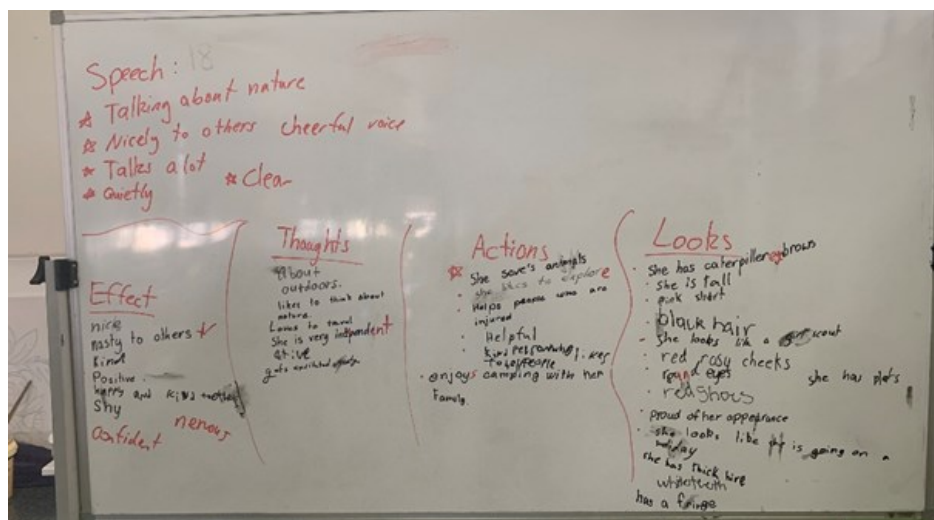 Speech: 18
Talking about nature
Nicely to others cheerful voice
Talks a lot
Quietly
Clear
Effect
nice
nasty to others
kind
Positive
happy and kind
Shy
confident
nervous
Thoughts
About
outdoors.
likes to think about
nature.
Loves to travel
She is very independent
Actions
She save's animals
she likes to explore
Helps people who are
injured
Helpful
likes
enjoys camping with her
Family.
Looks
She has caterpiller eyebrows
She is tall
pink shirt
black hair
She looks like a scout
red rosy cheeks
round eyes
she has plats
proud of her appearance
she looks like is going on a
holiday
she has thick
white teeth
has a fringe